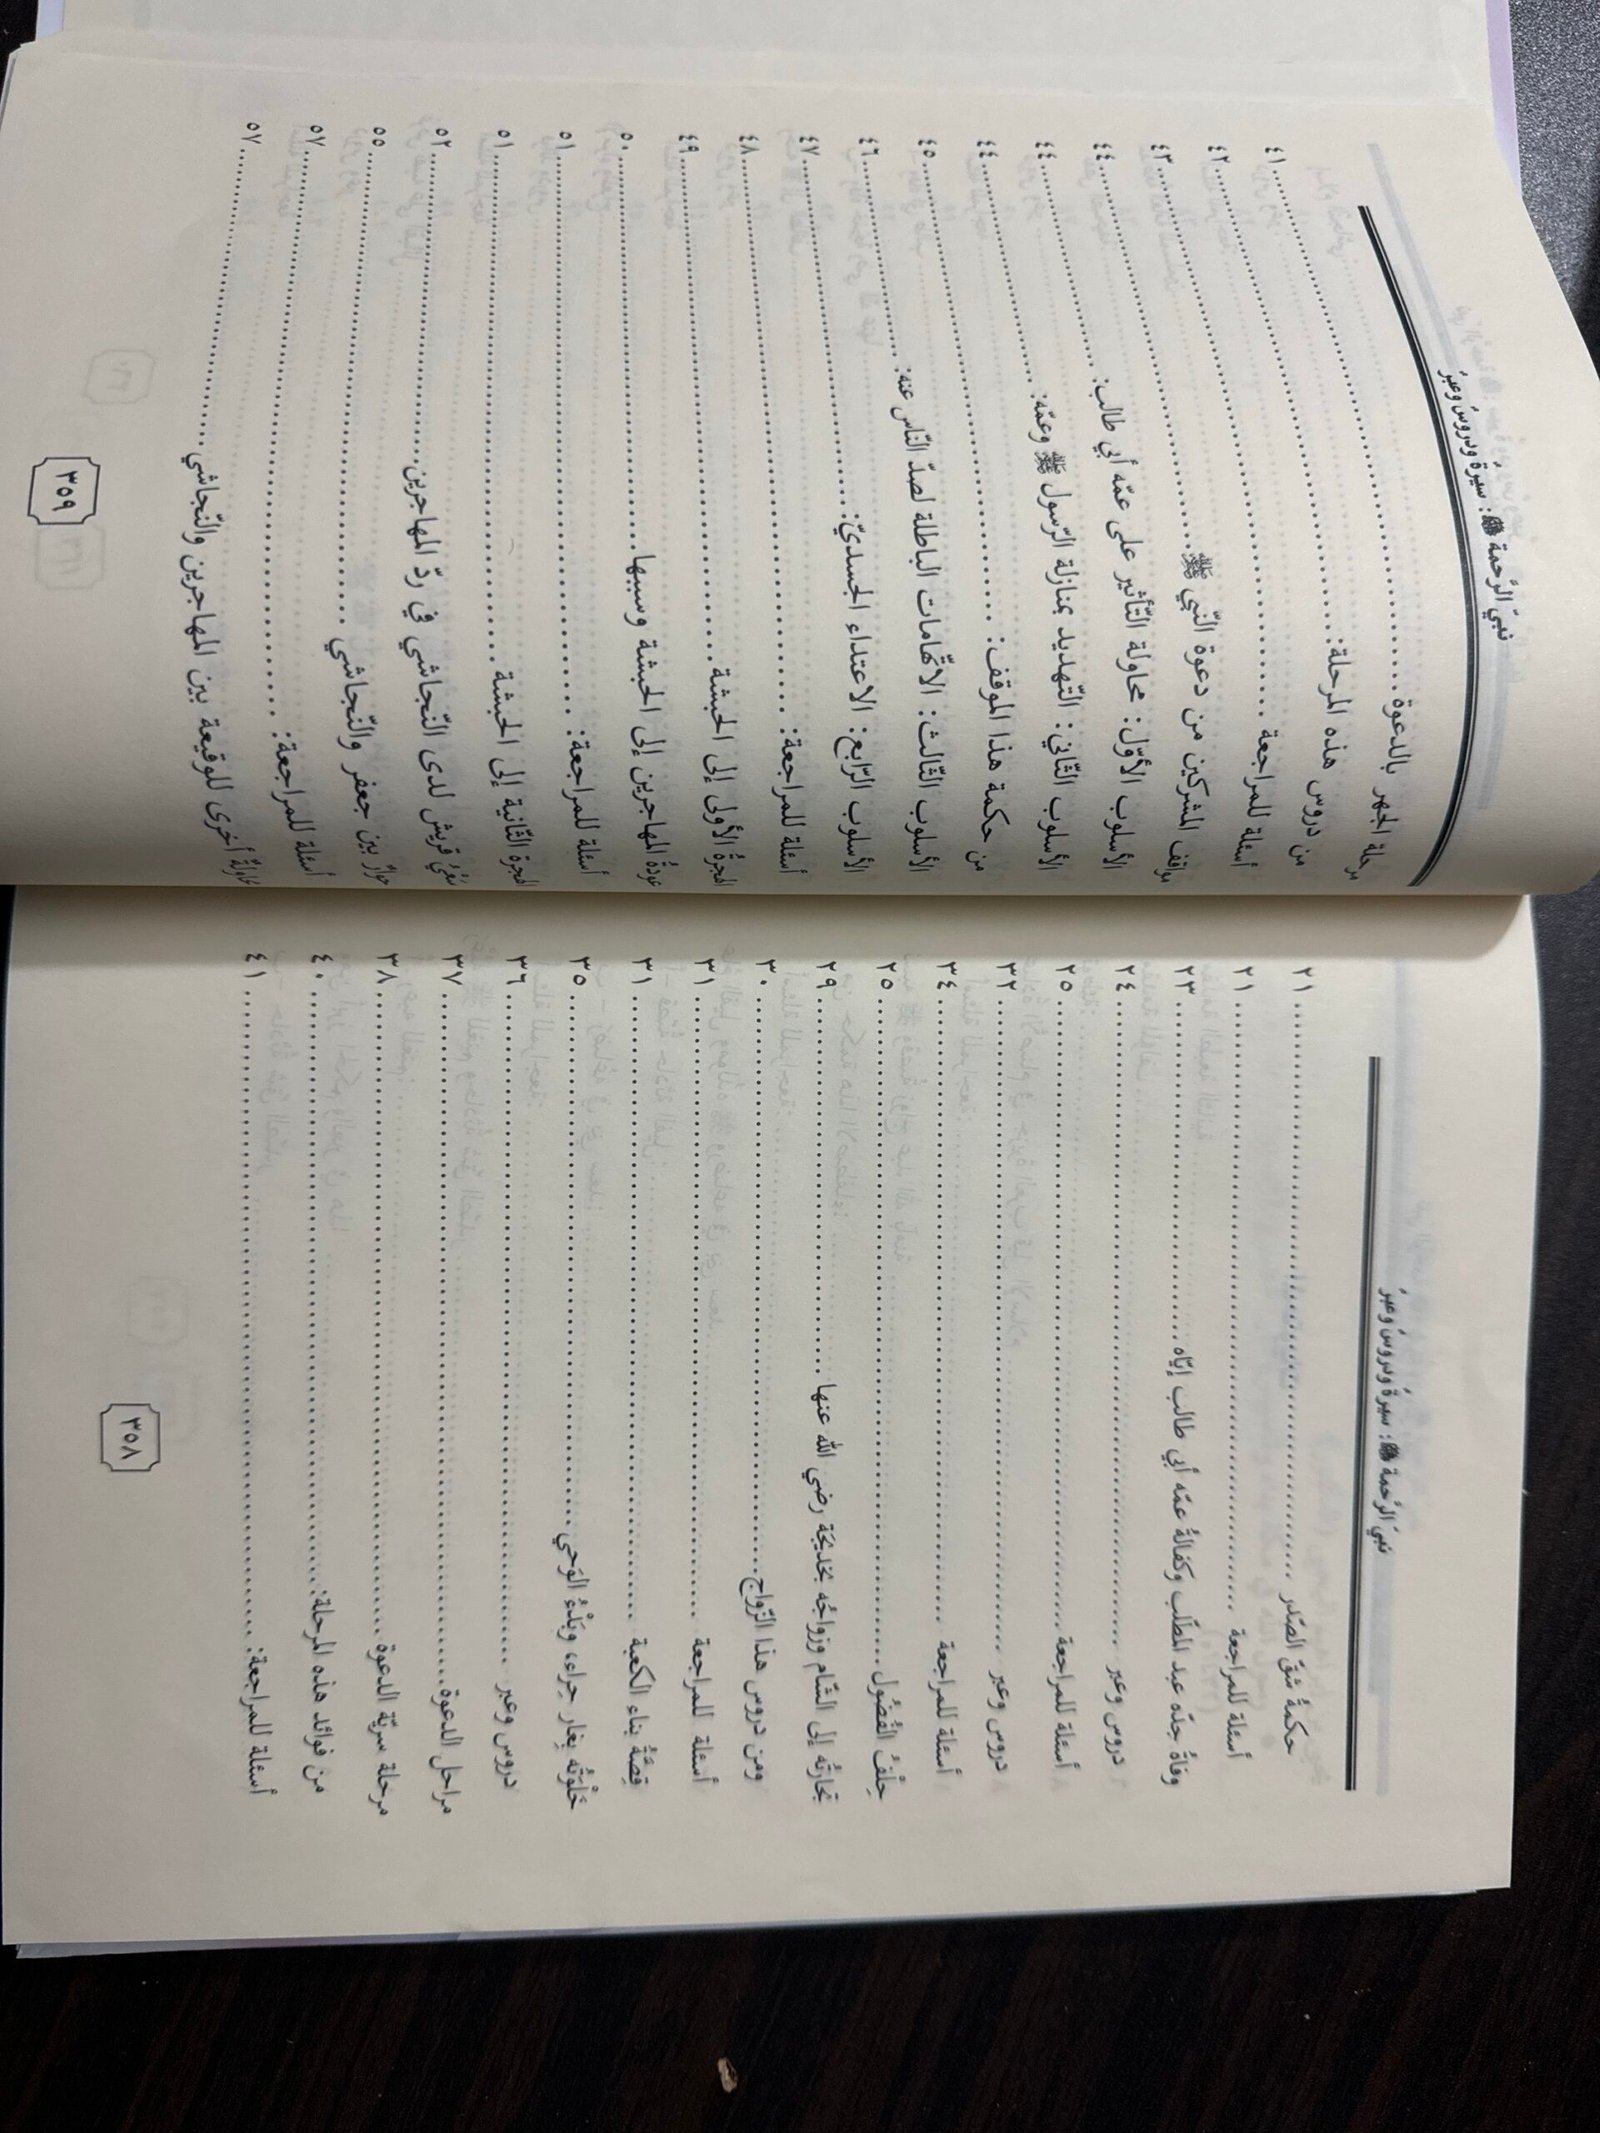 نبيّ الرّحمة ﷺ: سيرةٌ ودروسٌ وعبرٌ
حكمةُ شقّ الصّدر ........ ٢١
أسئلة للمراجعة ........ ٢١
وفاةُ جدّه عبد المطّلب وكفالةُ عمّه أبي طالب إيّاه ........ ٢٣
دروس وعبر ........ ٢٤
أسئلة للمراجعة ........ ٢٥
دروس وعبر ........ ٣٢
أسئلة للمراجعة ........ ٣٤
حِلْفُ الفُضُول ........ ٢٥
تجارتُه إلى الشّام وزواجُه بخديجَة رضي الله عنها ........ ٢٩
ومن دروس هذا الزّواج ........ ٣٠
أسئلة للمراجعة ........ ٣١
قِصّةُ بناء الكعبة ........ ٣١
خَلْوَتُه بِغار حِراء، وبَدْءُ الوَحي ........ ٣٥
دروس وعبر ........ ٣٦
مراحل الدعوة ........ ٣٧
مرحلة سريّة الدعوة ........ ٣٨
من فوائد هذه المرحلة: ........ ٤٠
أسئلة للمراجعة: ........ ٤١
٣٥٨
نبيّ الرّحمة ﷺ: سيرةٌ ودروسٌ وعبرٌ
مرحلة الجهر بالدعوة ........
من دروس هذه المرحلة: ........ ٤١
أسئلة للمراجعة ........ ٤٢
مواقف المشركين من دعوة النّبيّ ﷺ ........ ٤٣
الأسلوب الأوّل: محاولة التّأثير على عمّه أبي طالب: ........ ٤٤
الأسلوب الثّاني: التّهديد بمنازلة الرّسول ﷺ وعمّه: ........ ٤٤
من حكمة هذا الموقف: ........ ٤٤
الأسلوب الثّالث: الاتّهامات الباطلة لصدّ النّاس عنه: ........ ٤٥
الأسلوب الرّابع: الاعتداء الجسديّ: ........ ٤٦
أسئلة للمراجعة: ........ ٤٧
الهجرةُ الأولى إلى الحبشة ........ ٤٨
عودةُ المهاجرين إلى الحبشة وسببها ........ ٤٩
أسئلة للمراجعة: ........ ٥٠
الهجرة الثّانية إلى الحبشة ........ ٥١
سَعْيُ قريش لدى النّجاشي في ردّ المهاجرين ........ ٥١
حوارٌ بين جعفر والنّجاشي ........ ٥٢
أسئلة للمراجعة: ........ ٥٥
محاولةٌ أخرى للوقيعة بين المهاجرين والنّجاشي ........ ٥٧
٥٧
٣٥٩